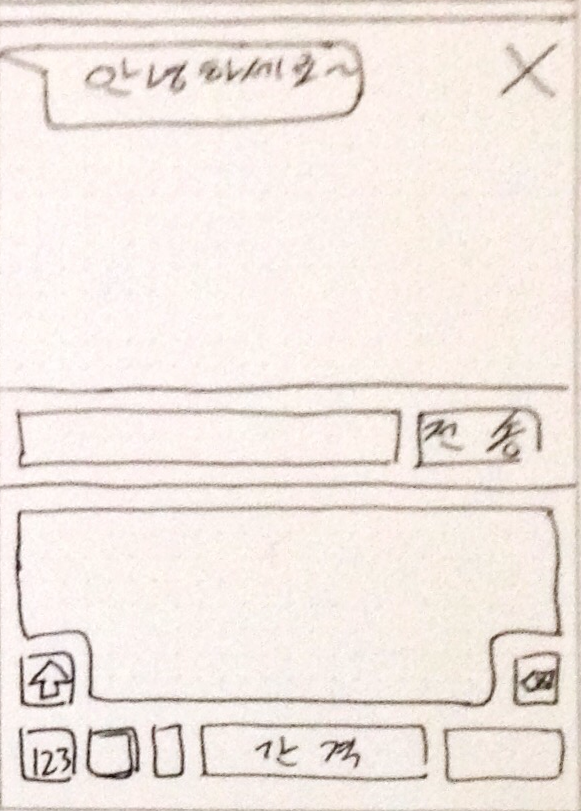 안녕하세요~
전 송
123
간 격